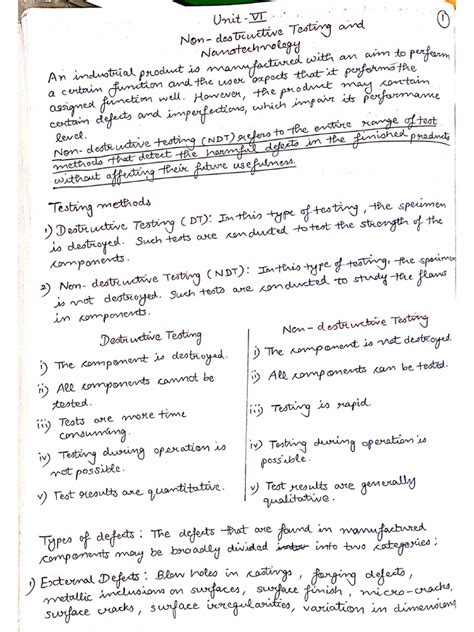 Unit-VI
1
Non-destructive Testing and
Nanotechnology
An industrial product is manufactured with an aim to perform
a certain function and the user expects that it performs the
assigned function well. However, the product may contain
certain defects and imperfections, which impair its performance
level.
Non-destructive testing (NDT) refers to the entire range of test
methods that detect the harmful defects in the finished products
without affecting their future usefulness.
Testing methods
1) Destructive Testing (DT): In this type of testing, the specimen
is destroyed. Such tests are conducted to test the strength of the
components.
2) Non-destructive Testing (NDT): In this type of testing, the specimen
is not destroyed. Such tests are conducted to study the flaws
in components.
Destructive Testing
i) The component is destroyed.
ii) All components cannot be
tested.
iii) Tests are more time
consuming.
iv) Testing during operation is
not possible.
v) Test results are quantitative.
Non-destructive Testing
i) The component is not destroyed.
ii) All components can be tested.
iii) Testing is rapid.
iv) Testing during operation is
possible.
v) Test results are generally
qualitative.
Types of defects: The defects that are found in manufactured
components may be broadly divided into two categories:
1) External Defects: Blow holes in castings, forging defects,
metallic inclusions on surfaces, surface finish, micro-cracks,
surface cracks, surface irregularities, variation in dimensions